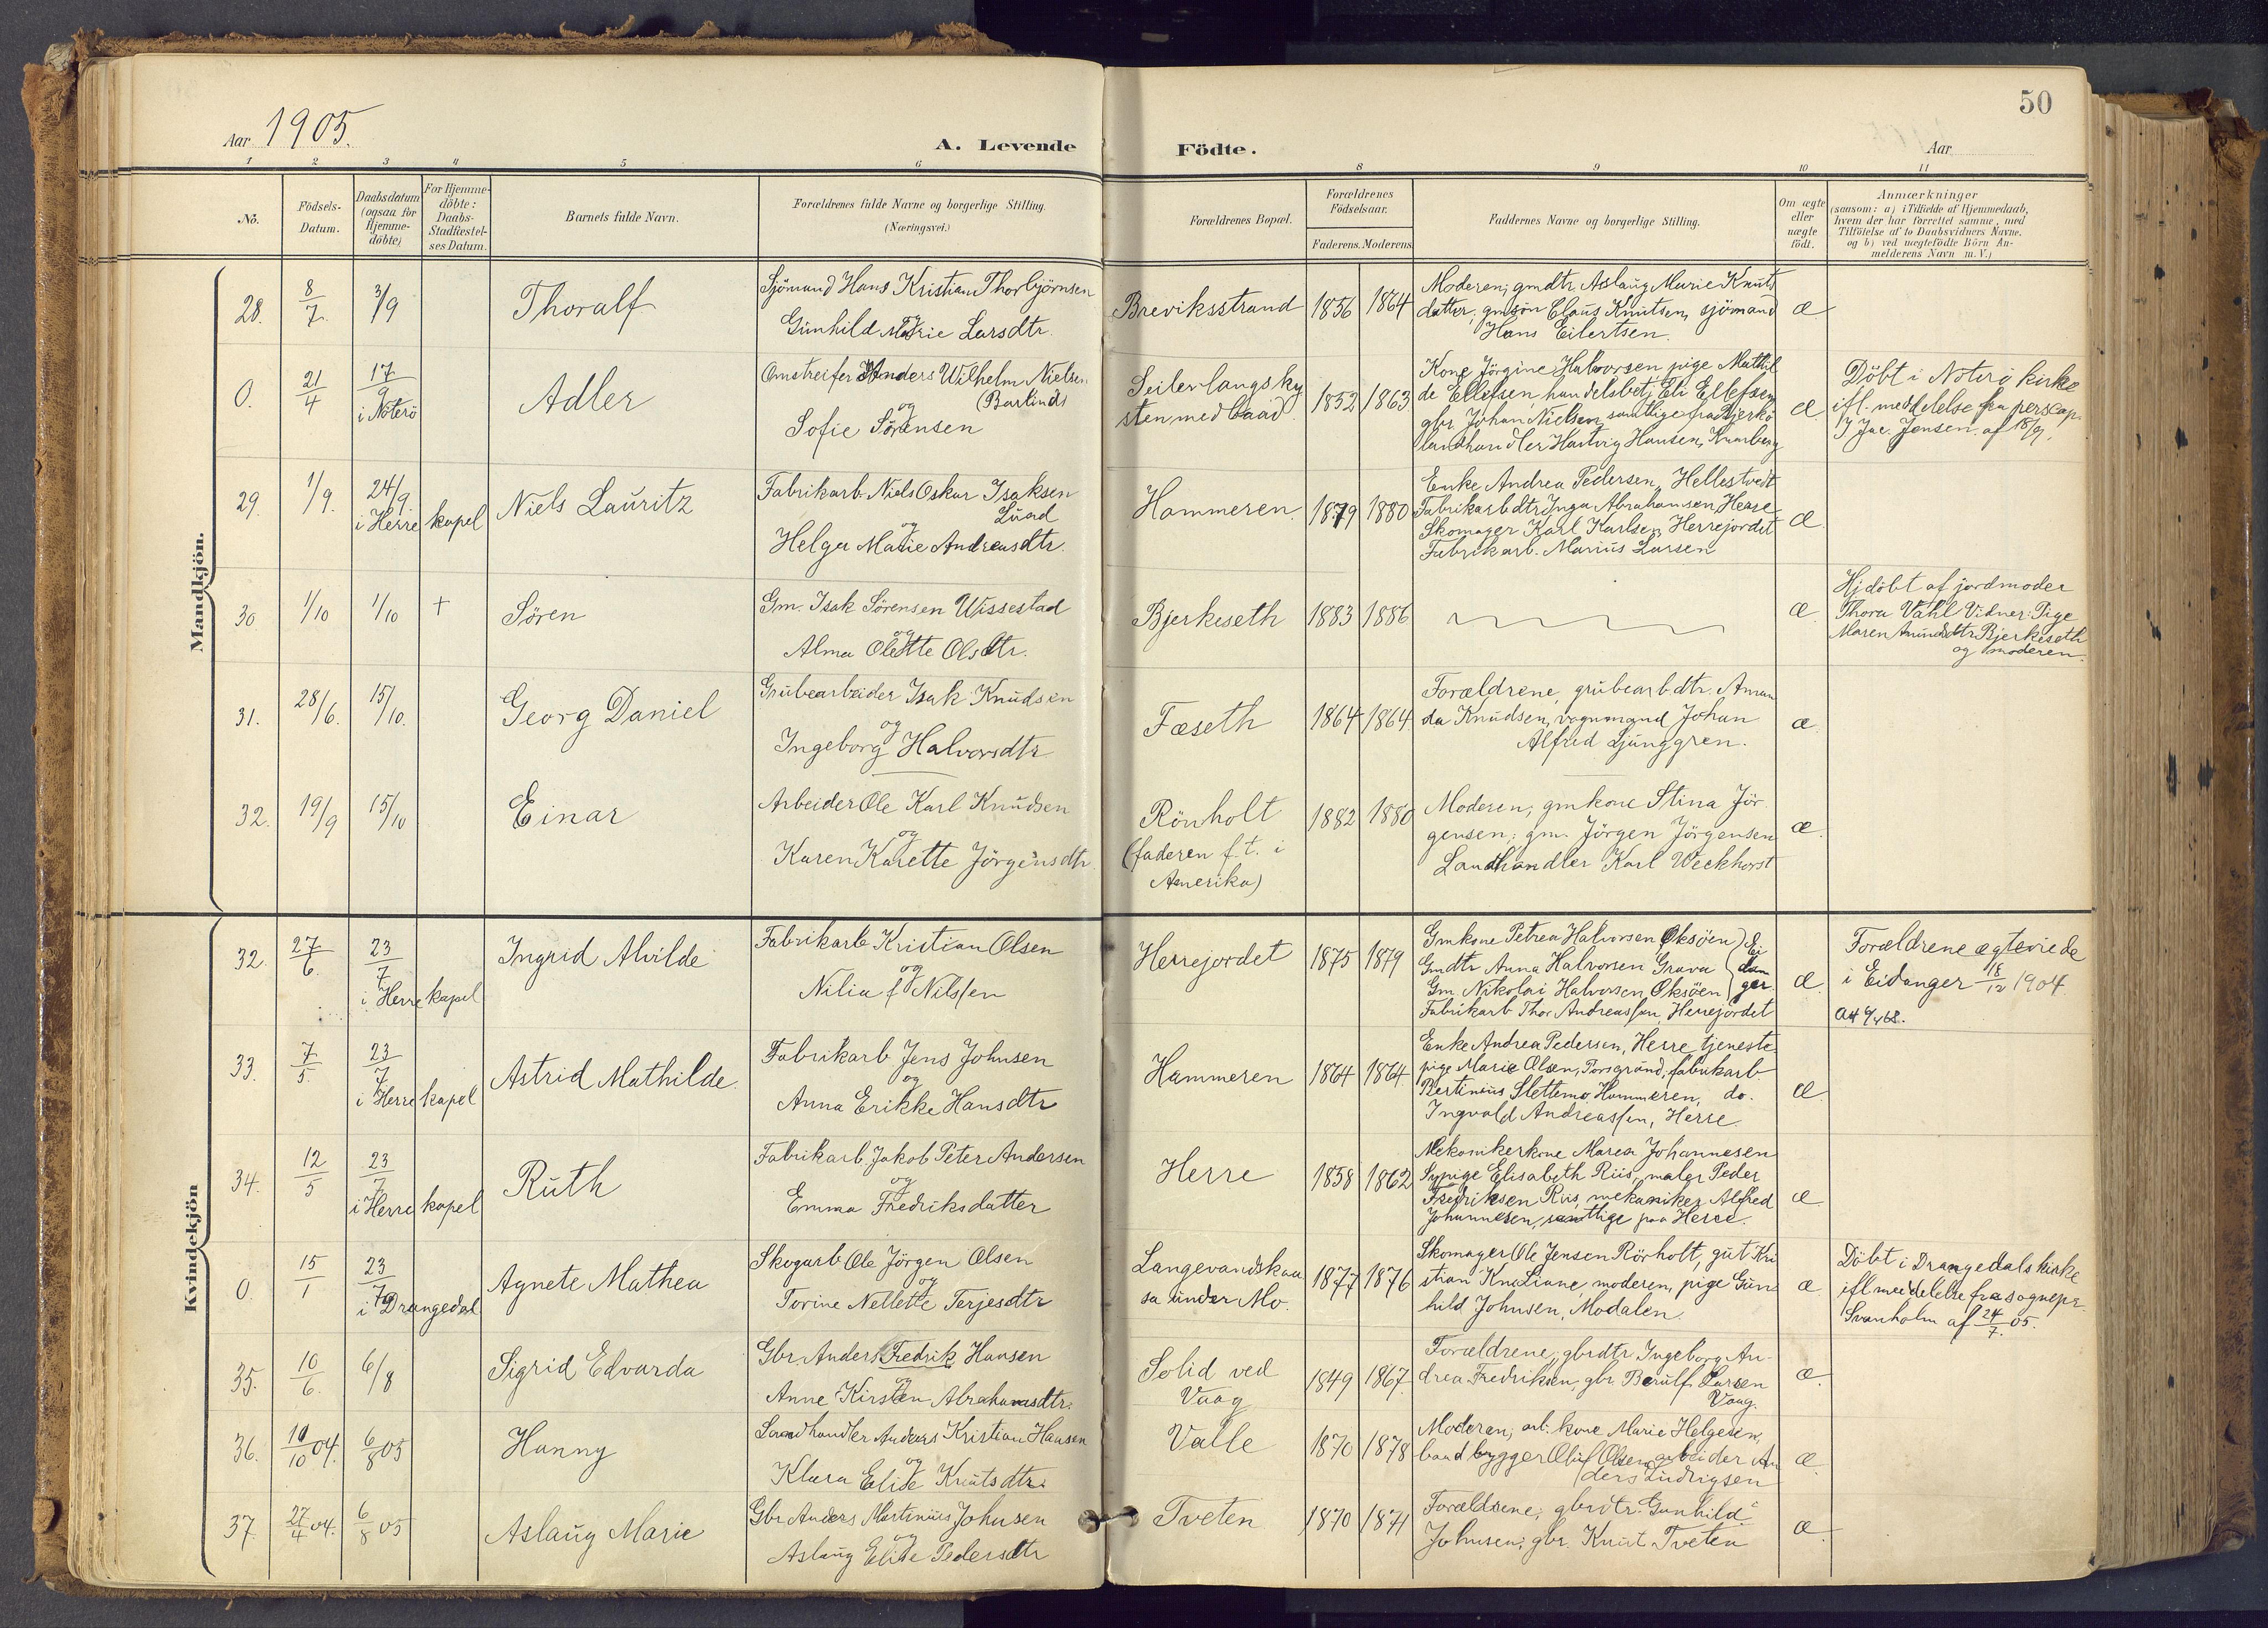 50
Aar 1905.
A. Levende
Födte.
Aar
1 2 3 4 5 6 8 9 10 11
No.
Födsels-
Datum.
Daabsdatum
(ogsaa for
Hjemme-
döbte)
For Hjemme-
döbte:
Daabs-
Stadfæstel-
ses Datum.
Barnets fulde Navn.
Forældrenes fulde Navne og borgerlige Stilling.
(Næringsvei.)
Forældrenes Bopæl.
Forældrenes
Födselsaar.
Faderens. Moderens
Faddernes Navne og borgerlige Stilling.
Om ægte
eller
uægte
födt.
Anmærkninger
(saasom: a) i Tilfælde af Hjemmedaab,
hvem der har forrettet samme, med
Tilföielse af to Daabsvidners Navne,
og b) ved uægtefödte Börn An-
melderens Navn m. V.)
Mandkjön.
28. 8/7 3/9 Thoralf
Sjömand Hans Kristian Thorbjörnsen
og
Gunhild Marie Larsdtr.
Breviksstrand 1856 1864
Moderen; gmdtr Aslaug Marie Knuts
datter; gmsön Claus Knutsen, sjömand
Hans Eilertsen.
æ
0. 21/4 17/9
i Nöterö
Adler
Omstreifer Anders Wilhelm Nielsen
og (Barlind)
Sofie Sörensen
Seiler langs ky
sten med baad. 1852 1863
Kone Jörgine Halvorsen, pige Mathil
de Ellefsen, handelsbetj. Eli Ellefsen
gbr. Johan Nielsen, samtlige fra Bjerkö
landhandler Hartvig Hansen,
æ
Döbt i Nöterö kirke
ifl. meddelelse fra perscap.
J. Jac. Jensen af 18/9.
29. 1/9. 24/9.
i Herre kapel
Niels Lauritz
Fabrikarb. Niels Oskar Isaksen
Lund
og
Helga Marie Andreasdtr.
Hammeren. 1879 1880
Enke Andrea Pedersen, Hellestvedt
Fabrikarbdtr Inga Abrahamsen, Herre
Skomager Karl Karlsen, Herrejordet
Fabrikarb. Marius Larsen
æ.
30 1/10 1/10 + Sören
Gm. Isak Sörensen Wissestad
og
Alma Olette Olsdtr.
Bjerkeseth 1883 1886
æ.
Hjdöbt af jordmoder
Thora Vahl. Vidner: Pige
Maren Amundsdtr. Bjerkeseth
og moderen.
31. 28/6. 15/10. Georg Daniel
Grubearbeider Isak Knudsen
og
Ingeborg Halvorsdtr
Fæseth 1864 1864
Forældrene, grubearbdtr. Aman
da Knudsen, vognmand Johan
Alfred Ljunggren.
æ.
32. 19/9 15/10 Einar
Arbeider Ole Karl Knudsen
og
Karen Karette Jörgensdtr
Rönholt
(faderen f.t. i
Amerika)
1882 1880
Moderen, gmkone Stina Jör
gensen; gm. Jörgen Jörgensen
Landhandler Karl Weckhorst
æ.
Kvindekjön
32. 27/6. 23/7
i Herre kapel
Ingrid Alvilde
Fabrikarb. Kristian Olsen
og
Nilia f Nilssen
Herrejordet 1875 1879
Gmkone Petrea Halvorsen Oksöen
Gmdtr Anna Halvorsen Grava
Gm. Nikolai Halvorsen Oksöen
Eidanger
Fabrikarb Thor Andreassen, Herrejordet
æ.
Forældrene ægteviede
i Eidanger 18/12 1904.
33. 7/5. 23/7
i Herre kapel
Astrid Mathilde.
Fabrikarb Jens Johnsen
og
Anna Erikke Hansdtr
Hammeren 1864 1864
Enke Andrea Pedersen, Herre, tjeneste
pige Marie Olsen, Porsgrund, fabrikarb.
Bertinius Slettemo Hammeren, do.
Ingvald Andreassen, Herre.
æ.
34. 12/5 23/7
i Herre kapel
Ruth
Fabrikarb. Jakob Peter Andersen
og
Emma Fredriksdatter
Herre 1858 1862
Mekanikerkone Maren Johannesen
Sypige Elisabeth Riis, maler Peder
Fredriksen Riis, mekaniker Alfred
Johannesen, samtlige paa Herre.
æ.
0. 15/1 23/7
i Drangedal
Agnete Mathea
Skogarb Ole Jörgen Olsen
og
Torine Nellette Terjesdtr
Langevandskaa
sa under Mo. 1877 1876
Skomager Ole Jensen Rörholt, gut Kri
stian Knaliane, moderen, pige Gun
hild Johnsen, Modalen.
æ
Döbt i Drangedals kirke
ifl meddelelse fra sognepr.
Svanholm af 24/7. 05.
35. 10/6. 6/8 Sigrid Edvarda
Gbr. Anders Fredrik Hansen
og
Anne Kirsten Abrahamsdtr.
Solid ved
Vaag 1849 1867.
Forældrene; gbrdtr. Ingeborg An-
drea Fredriksen, gbr. Berulf Larsen
Vaag.
æ.
36. 10/10 04. 6/8 05 Hanny
Landhandler Anders Kristian Hansen
og
Klara Elise Knutsdtr.
Valle 1870 1878
Moderen; arb: kone Marie Helgesen,
baadbygger Oluf Olsen, arbeider An
ders Ludvigsen
æ.
37. 27/4 04. 6/8 05 Aslaug Marie
Gbr Anders Martinius Johnsen
og
Aslaug Elise Pedersdtr
Tveten 1870 1871
Forældrene; gbrdtr. Gunhild
Johnsen; gbr. Knut Tveten
æ.